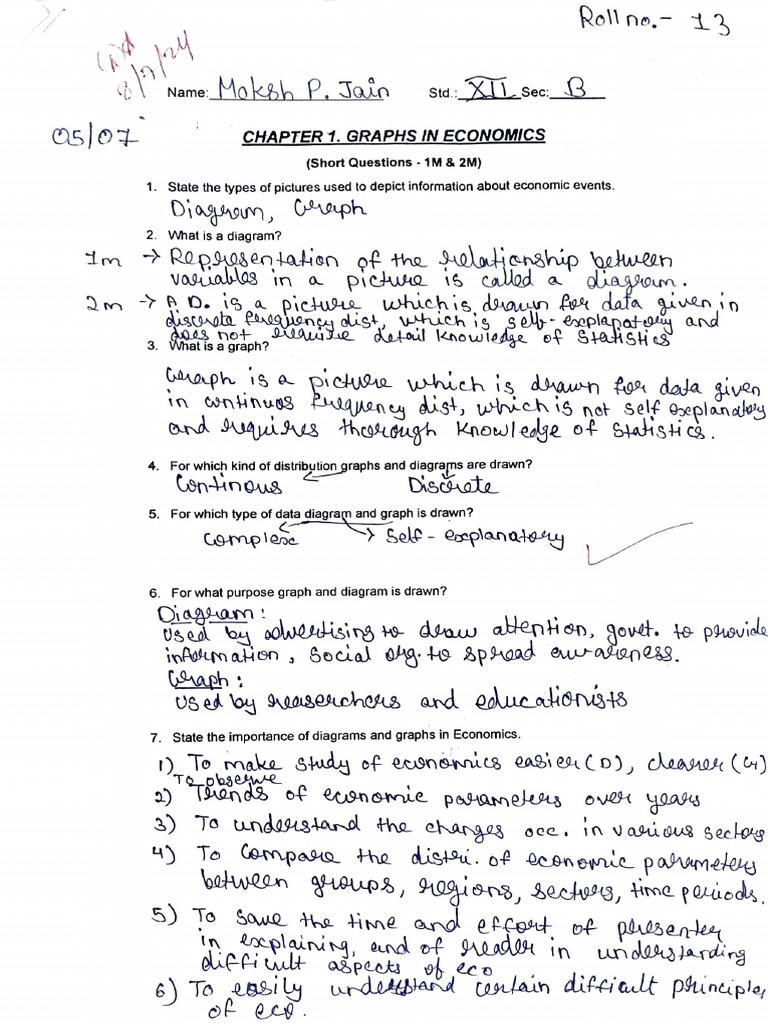 Roll no.- 13
8/7/24
Name: Moksh P. Jain Std.: XII Sec: B
05/07
CHAPTER 1. GRAPHS IN ECONOMICS
(Short Questions - 1M & 2M)
1. State the types of pictures used to depict information about economic events.
Diagram, Graph
2. What is a diagram?
1m → Representation of the relationship between
variables in a picture is called a diagram.
2m → A D. is a picture which is drawn for data given in
discrete frequency dist, which is self-explanatory and
does not require detail knowledge of statistics
3. What is a graph?
Graph is a picture which is drawn for data given
in continuos frequency dist, which is not self explanatory
and requires thorough knowledge of statistics.
4. For which kind of distribution graphs and diagrams are drawn?
Continous Discrete
5. For which type of data diagram and graph is drawn?
Complex → Self-explanatory
6. For what purpose graph and diagram is drawn?
Diagram:
Used by advertising to draw attention, govet. to provide
information, social org. to spread awareness.
Graph:
Used by reaserchers and educationists
7. State the importance of diagrams and graphs in Economics.
1) To make study of economics easier (D), clearer (G)
To observe
2) Trends of economic parameters over years
3) To understand the changes occ. in various sectors
4) To compare the distri. of economic parameters
between groups, regions, sectors, time periods.
5) To save the time and effort of presenter
in explaining, and of reader in understanding
difficult aspects of eco
6) To easily understand certain difficult principles
of eco.